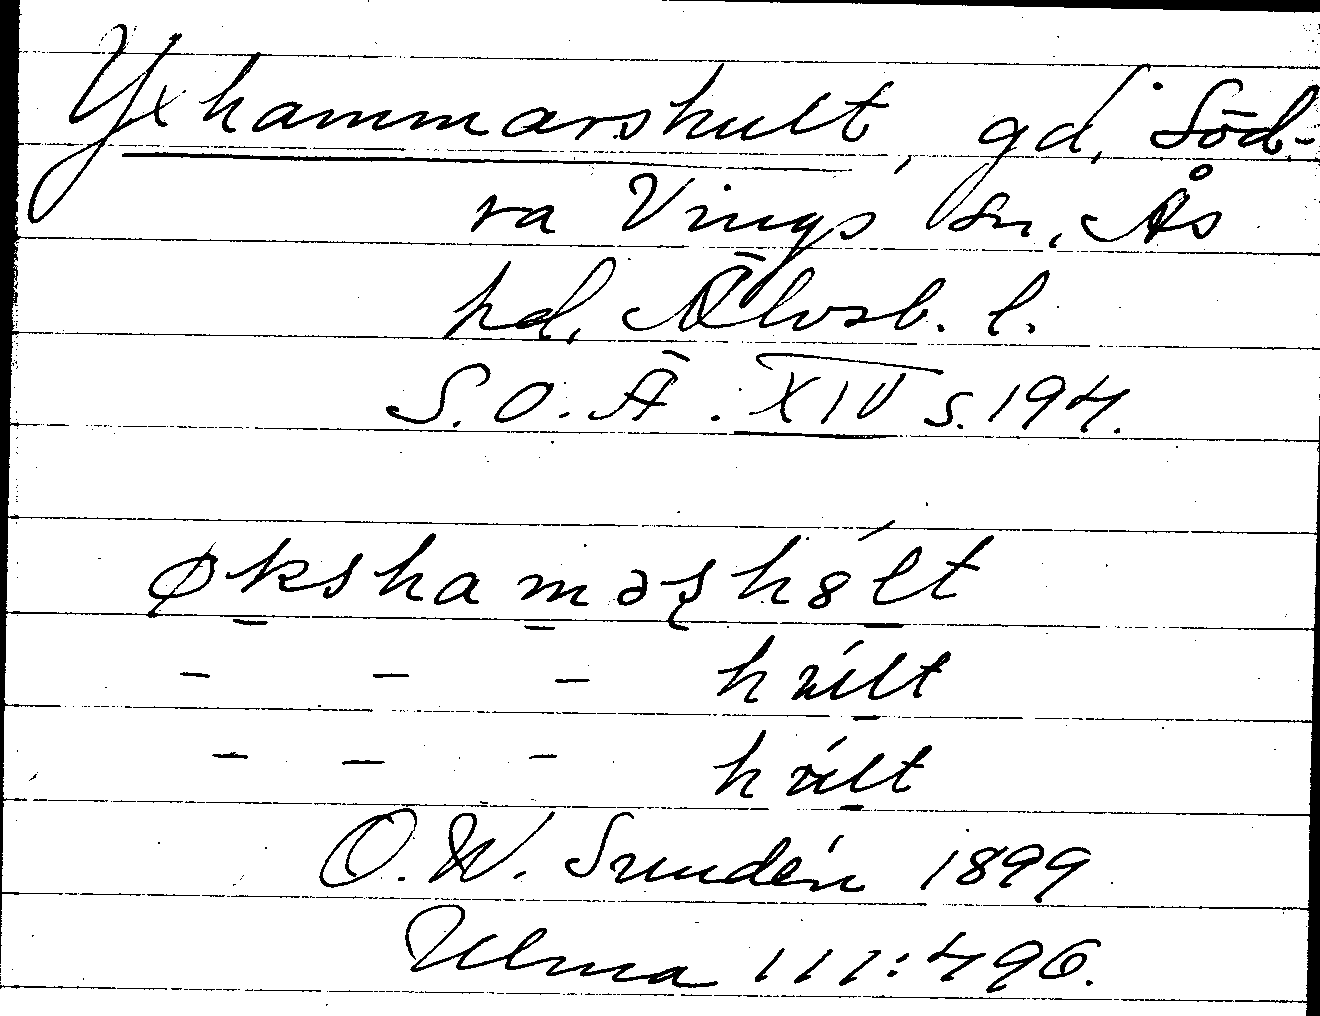 Yxhammarshult, gd, Söd-
ra Vings sn, Ås
hd, Älvsb. l.
S.O.Ä. XIV s. 194.
økshaməʂhȣ́lt
- - - húlt
- - - hú̇lt
O.W. Sundén 1899
Ulma 111:496.